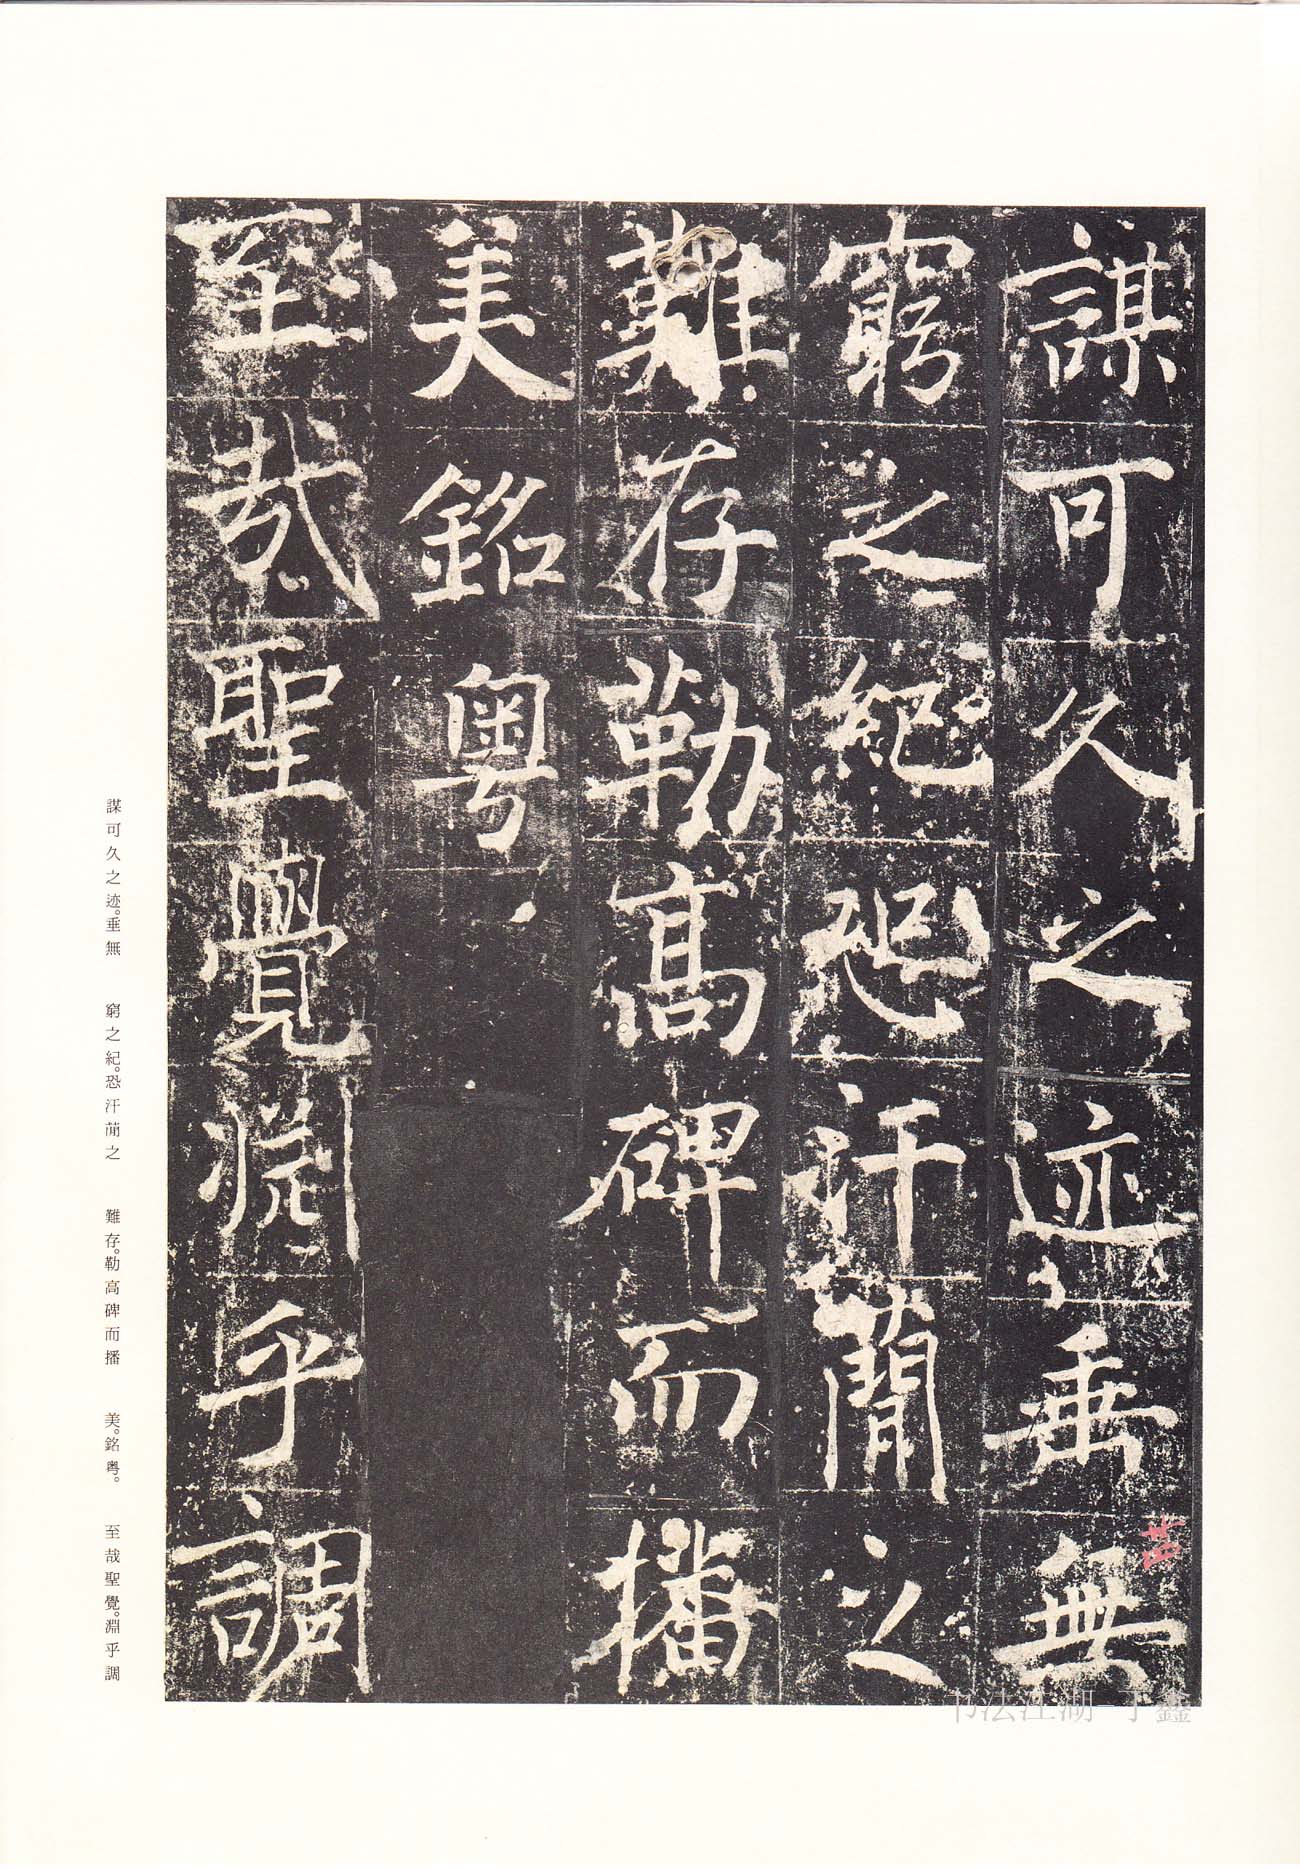 謀可久之迹垂無
窮之紀恐汗蕳之
難存勒高碑而播
美銘粵
至哉聖覺淵乎調
謀可久之迹。垂無 窮之紀。恐汗蕳之 難存。勒高碑而播 美。銘粤。 至哉聖覺。淵乎調
书法江湖-丁鑫